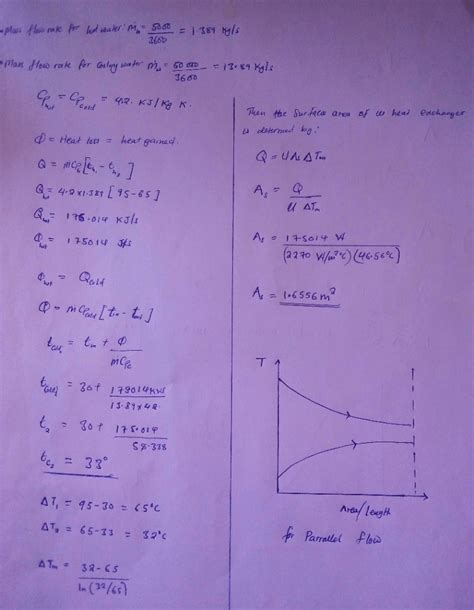 • Mass flow rate for hot water: ṁₕ = 5000/3600 = 1.389 Kg/s
• Mass flow rate for Cooling water ṁc = 50 000/3600 = 13.89 Kg/s
Cp_hot = Cp_cold = 4.2 KJ/Kg K.
Φ = Heat loss = heat gained.
Q = mCpₕ[tₕ₁ - tₕ₂]
Qhot = 4.2×1.389[95-65]
Qhot = 175.014 KJ/s
Φhot = 175014 J/s
Φhot = Qcold
Φ = mCpcold[tin - tout]
tout = tin + Φ/mCpc
tout = 30+ 175014KW/13.89×4.2
t₂ = 30+ 175.014/58.338
tc₂ = 33°
ΔT₁ = 95-30 = 65°C
ΔT₂ = 65-33 = 32°C
ΔTm = 32-65/ln(32/65)
Then the Surface area of heat exchanger
is determined by:
Q = UAsΔTm
As = Q/U ΔTm
As = 175014 W/(2270 W/m²°C)(46.56°C)
As = 1.6556 m²
T
Area/Length
for Parrallel flow